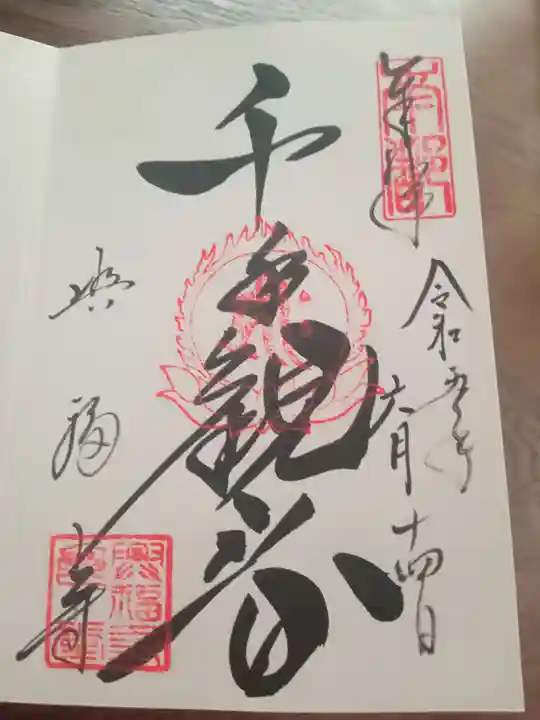 奉拝
令和五年
六月十四日
千手観音
興福寺